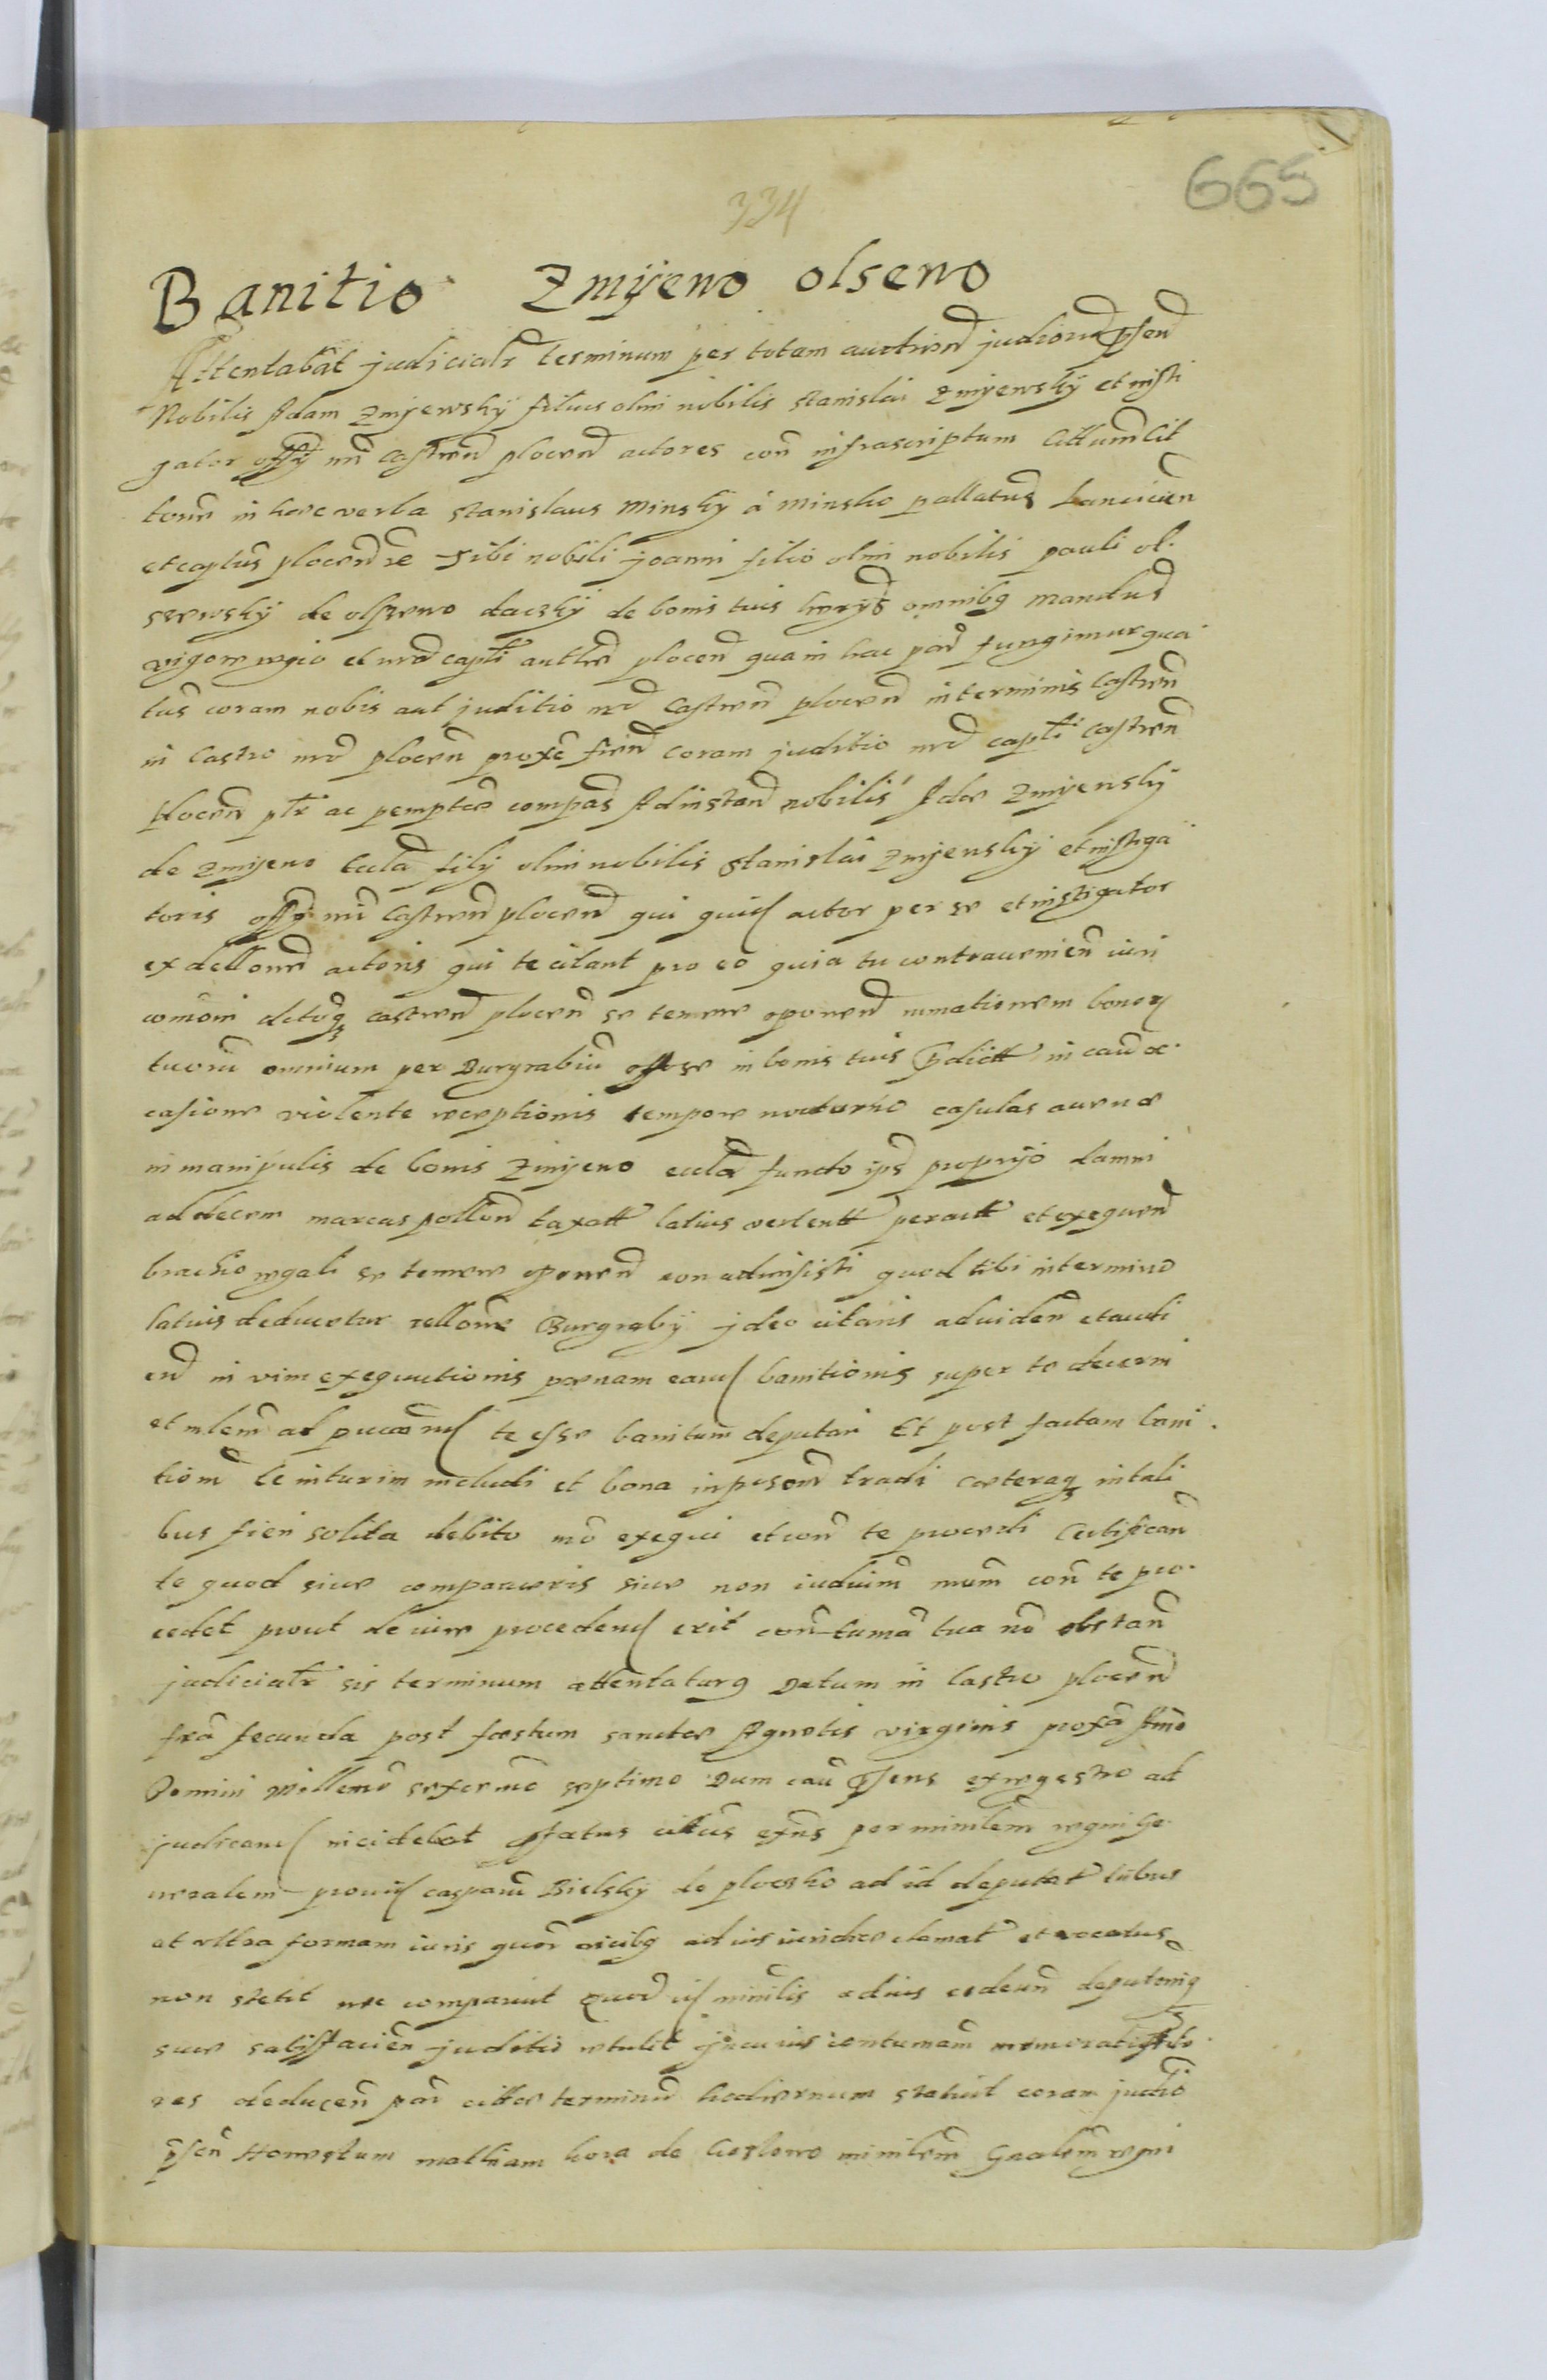 334
665
Banitio Zmijewo olsewo
Attentabat judicialr terminum per totam judior psen
Nobilis Adam Zmijewsky filius olim nobilis Stanislai Zmijewsky et insti
gator offy nri Castren plocen actores con infrascriptum Citatum Cit
tone in hæc verba Stanislaus Minsky á Minsko pallatus Lancicien
et captus plocen Tibi nobili Joanni filio olim nobilis pauli ol.
szewsky de olszewo daczky de bonis tuis omnibq mandus
vigore regio et nrd capli autte plocen qua in hac par fungimur qua
tus coram nobis aut juditio nrd Castren plocen in terminis Castren
in Castro nrd plocen proxe fien coram juditio nrd capli Castren
plocen ptr ac pempte compas Ad instan nobilis Adæ Zmijewsky
de Zmijewo eccla filij olim nobilis Stanislai Zmijewsky et instiga
toris offy nri Castren plocen qui quid actor per se et instigator
ex dellone actoris qui te citant pro eo quia tu contrauenien iuri
comoni castren plocen se temere oponen rumationem bonor
tuoru omnium per Burgrabiu offose in bonis tuis pdictt in cau oc.
casione violente receptionis tempore nocturno casulas auenæ
in manipulis de bonis Zmijewo eccla fundo ips proprijo damni
ad decem marcas pollon taxatt latius vertentt peractt et exequen
brachio regali se temere oponen non admisisti quod tibi in termino
latius deducetur rellone Burgraby jdeo citaris ad viden et audi
end in vim exequutionis pænam eand banitionis super te decerni
et te esse banitum deputari Et post factam bani.
tiom te in turim includi et bona in tradi cæteraq in tali
bus fieri solita debito mo exequi et con te procedi Certifican
te quod siue comparueris siue non iudium nrum con te pro.
cedet prout de iure procedend erit contuma tua no obstan
judicialr sis terminum attentaturq Datum in Castro plocen
fra secunda post fæstum sanctæ Agnetis virginis proxa Anno
Domini Millemo sexcenmo septimo Dum cau psens ex regestro ad
judicand incidebat pfatus citus exns per minilem regni ge.
neralem prouid casparu Bielsky de plocsko ad id deputat tribus
et vltra formam iuris quor vicibq ad ius iuridice clamat et vocatus
non stetit nec comparuit Quod id minilis ad ius eodeun deputoniq
suæ satisfacien juditio retulit In cuius contumam memorati Acto.
res deducen par citte terminu hodiernum statuit coram judio
psen Honestum mathiam hora de Coslowo minilem Gnalem regni